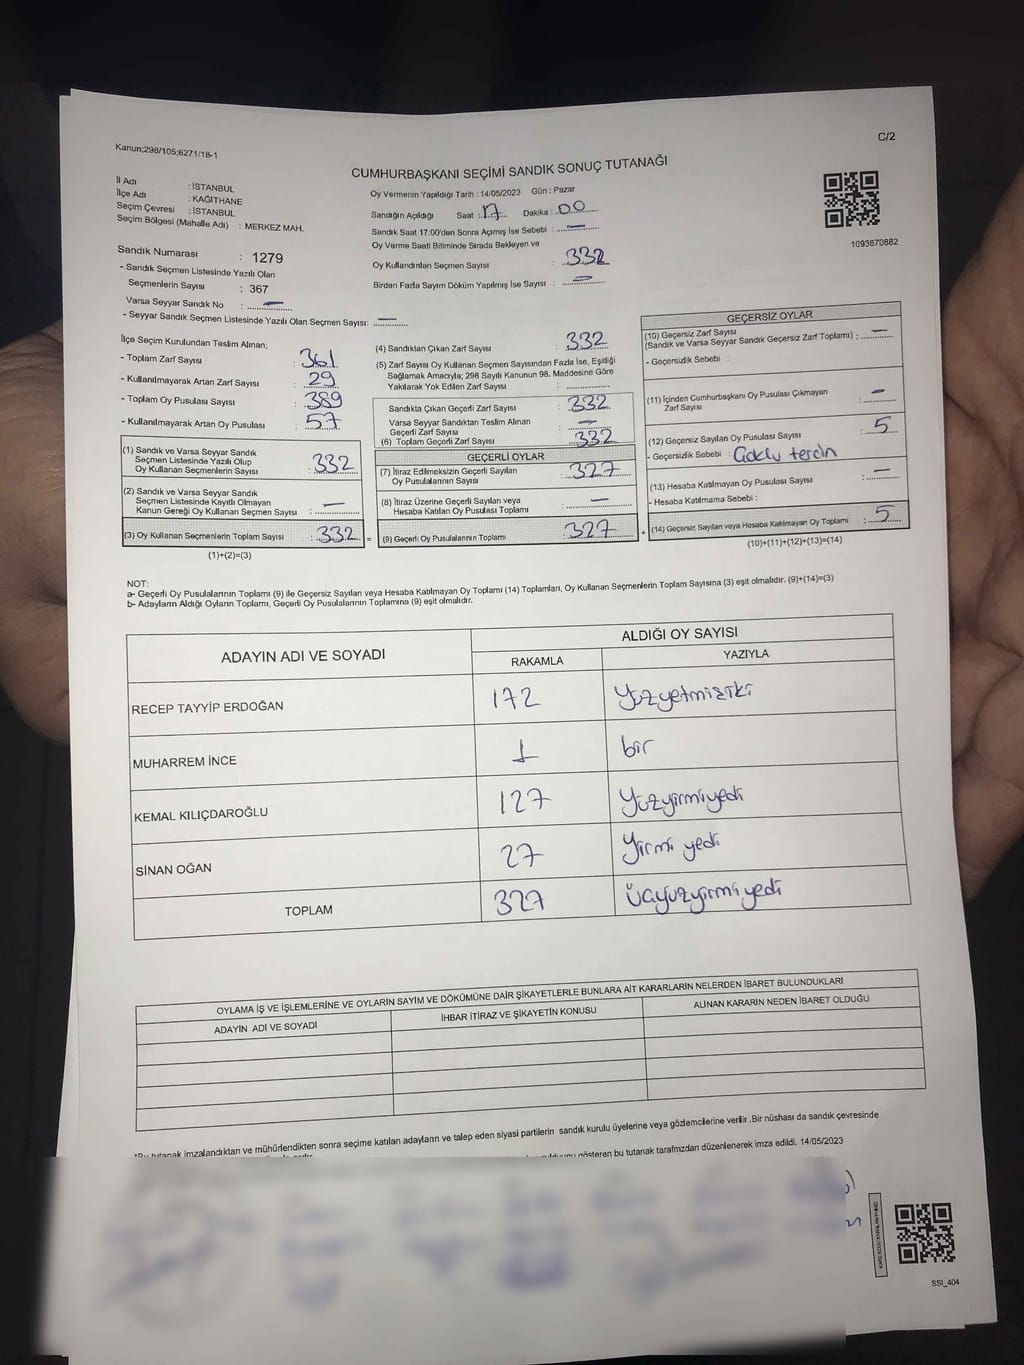 Kanun;298/105;6271/18-1
C/2
CUMHURBAŞKANI SEÇİMİ SANDIK SONUÇ TUTANAĞI
İl Adı : İSTANBUL
İlçe Adı : KAĞITHANE
Seçim Çevresi : İSTANBUL
Seçim Bölgesi (Mahalle Adı) : MERKEZ MAH.
Oy Vermenin Yapıldığı Tarih : 14/05/2023 Gün : Pazar
Sandığın Açıldığı Saat : 17 Dakika : 00
Sandık Saat 17:00'den Sonra Açımış İse Sebebi : —
Oy Verme Saati Bitiminde Sırada Bekleyen ve
Oy Kullandırılan Seçmen Sayısı : 332
Birden Fazla Sayım Döküm Yapılmış İse Sayısı : —
1093670882
Sandık Numarası : 1279
- Sandık Seçmen Listesinde Yazılı Olan
Seçmenlerin Sayısı : 367
Varsa Seyyar Sandık No : —
- Seyyar Sandık Seçmen Listesinde Yazılı Olan Seçmen Sayısı: —
İlçe Seçim Kurulundan Teslim Alınan;
- Toplam Zarf Sayısı : 361
- Kullanılmayarak Artan Zarf Sayısı : 29
- Toplam Oy Pusulası Sayısı : 389
- Kullanılmayarak Artan Oy Pusulası : 57
(1) Sandık ve Varsa Seyyar Sandık
Seçmen Listesinde Yazılı Olup
Oy Kullanan Seçmenlerin Sayısı : 332
(2) Sandık ve Varsa Seyyar Sandık
Seçmen Listesinde Kayıtlı Olmayan
Kanun Gereği Oy Kullanan Seçmen Sayısı : —
(3) Oy Kullanan Seçmenlerin Toplam Sayısı : 332 =
(1)+(2)=(3)
(4) Sandıktan Çıkan Zarf Sayısı : 332
(5) Zarf Sayısı Oy Kullanan Seçmen Sayısından Fazla İse, Eşitliği
Sağlamak Amacıyla; 298 Sayılı Kanunun 98. Maddesine Göre
Yakılarak Yok Edilen Zarf Sayısı :
Sandıkta Çıkan Geçerli Zarf Sayısı : 332
Varsa Seyyar Sandıktan Teslim Alınan
Geçerli Zarf Sayısı : —
(6) Toplam Geçerli Zarf Sayısı : 332
GEÇERLİ OYLAR
(7) İtiraz Edilmeksizin Geçerli Sayılan
Oy Pusulasının Sayısı : 327
(8) İtiraz Üzerine Geçerli Sayılan veya
Hesaba Katılan Oy Pusulası Toplamı : —
(9) Geçerli Oy Pusulalarının Toplamı : 327 +
GEÇERSİZ OYLAR
(10) Geçersiz Zarf Sayısı
(Sandık ve Varsa Seyyar Sandık Geçersiz Zarf Toplamı) : —
- Geçersizlik Sebebi :
(11) İçinden Cumhurbaşkanı Oy Pusulası Çıkmayan
Zarf Sayısı : —
(12) Geçersiz Sayılan Oy Pusulası Sayısı : 5
- Geçersizlik Sebebi : Çoklu tercih
(13) Hesaba Katılmayan Oy Pusulası Sayısı : —
- Hesaba Katılmama Sebebi :
(14) Geçersiz Sayılan veya Hesaba Katılmayan Oy Toplamı : 5
(10)+(11)+(12)+(13)=(14)
NOT:
a- Geçerli Oy Pusulalarının Toplamı (9) ile Geçersiz Sayılan veya Hesaba Katılmayan Oy Toplamı (14) Toplamları, Oy Kullanan Seçmenlerin Toplam Sayısına (3) eşit olmalıdır. (9)+(14)=(3)
b- Adayların Aldığı Oyların Toplamı, Geçerli Oy Pusulalarının Toplamına (9) eşit olmalıdır.
ADAYIN ADI VE SOYADI ALDIĞI OY SAYISI
RAKAMLA YAZIYLA
RECEP TAYYİP ERDOĞAN 172 Yüzyetmişiki
MUHARREM İNCE 1 bir
KEMAL KILIÇDAROĞLU 127 Yüzyirmiyedi
SİNAN OĞAN 27 Yirmi yedi
TOPLAM 327 Üçyüzyirmiyedi
OYLAMA İŞ VE İŞLEMLERİNE VE OYLARIN SAYIM VE DÖKÜMÜNE DAİR ŞİKAYETLERLE BUNLARA AİT KARARLARIN NELERDEN İBARET BULUNDUKLARI
ADAYIN ADI VE SOYADI İHBAR İTİRAZ VE ŞİKAYETİN KONUSU ALINAN KARARIN NEDEN İBARET OLDUĞU
*Bu tutanak imzalandıktan ve mühürlendikten sonra seçime katılan adayların ve talep eden siyasi partilerin sandık kurulu üyelerine veya gözlemcilerine verilir .Bir nüshası da sandık çevresinde
gösteren bu tutanak tarafımızdan düzenlenerek imza edildi. 14/05/2023
SSI_404